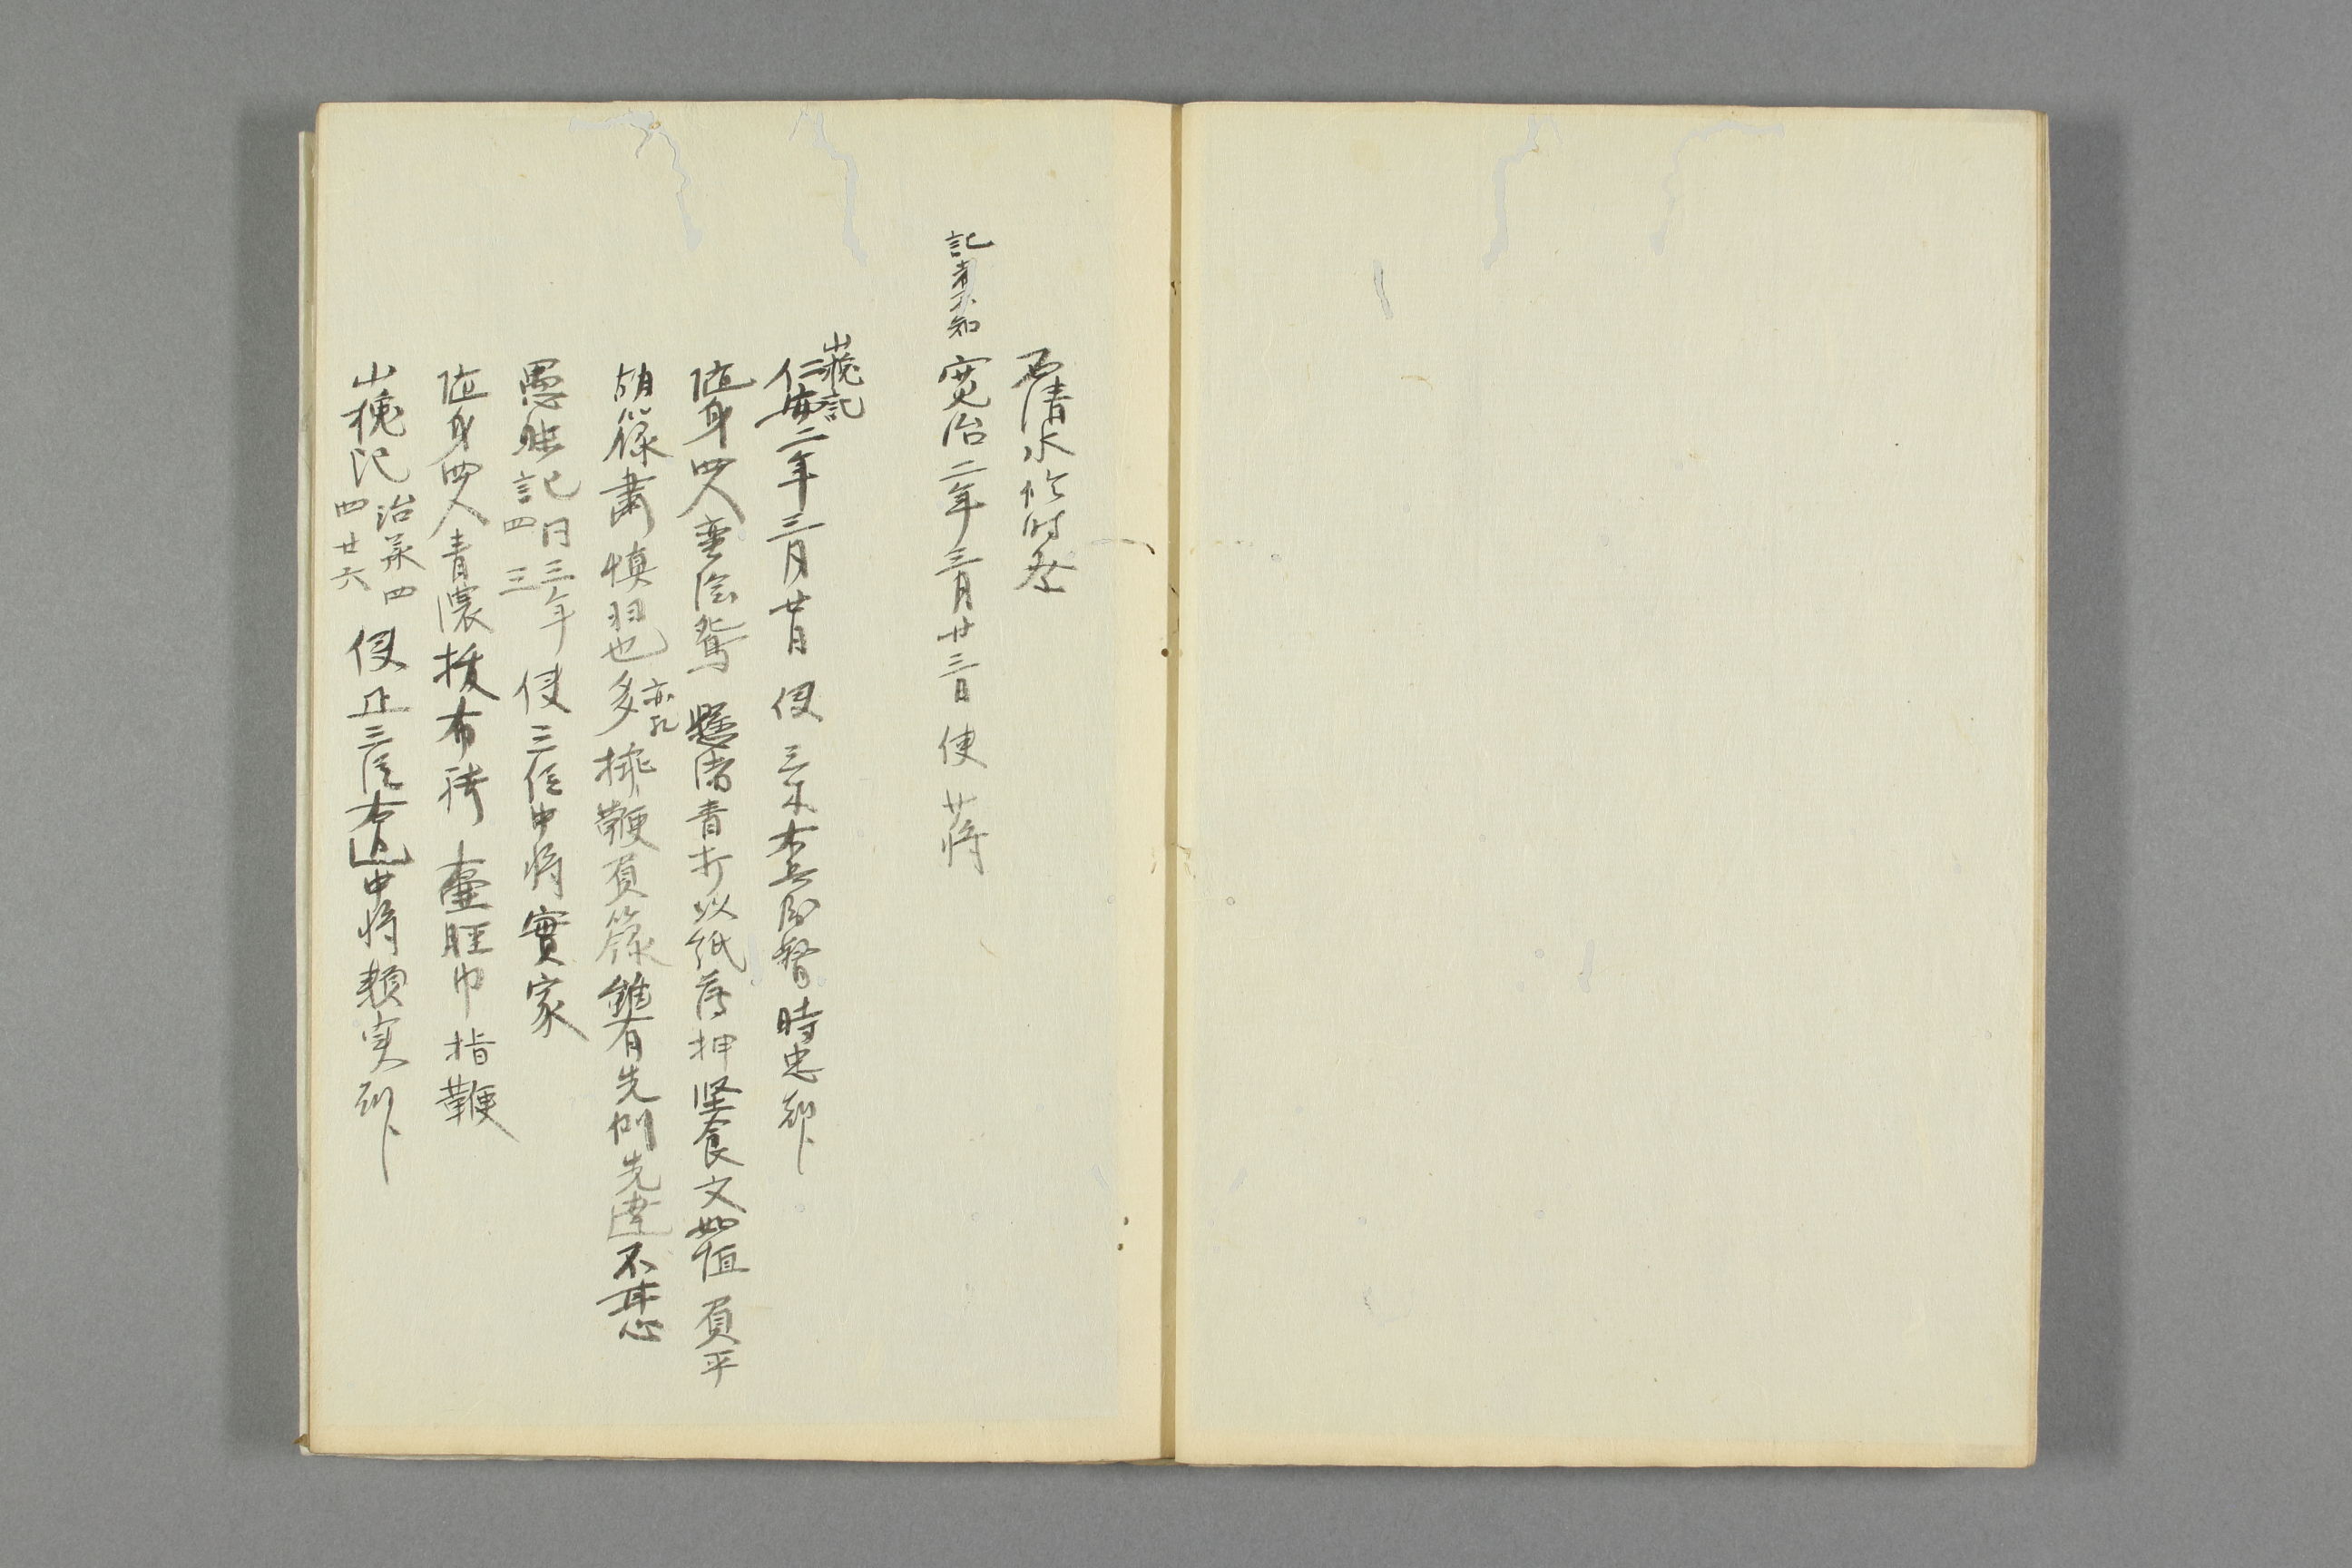 石清水臨時祭
記者不知 寛治二年三月廿三日 使 蒋
山槐記
仁安二年三月廿日 使 三木右兵衛督時忠卿
随身四人 蛮絵鴛 懸緒青打以紙為押 文如恒 負平
胡籙 粛慎羽也 多 挿鞭 負籙雖有先例 先達不甘心
愚昧記 同三年 四 三 使 三位中将實家
随身四人 青 布袴 指鞭
山槐記 治承四 四 廿六 使 正三位右近中将頼実卿